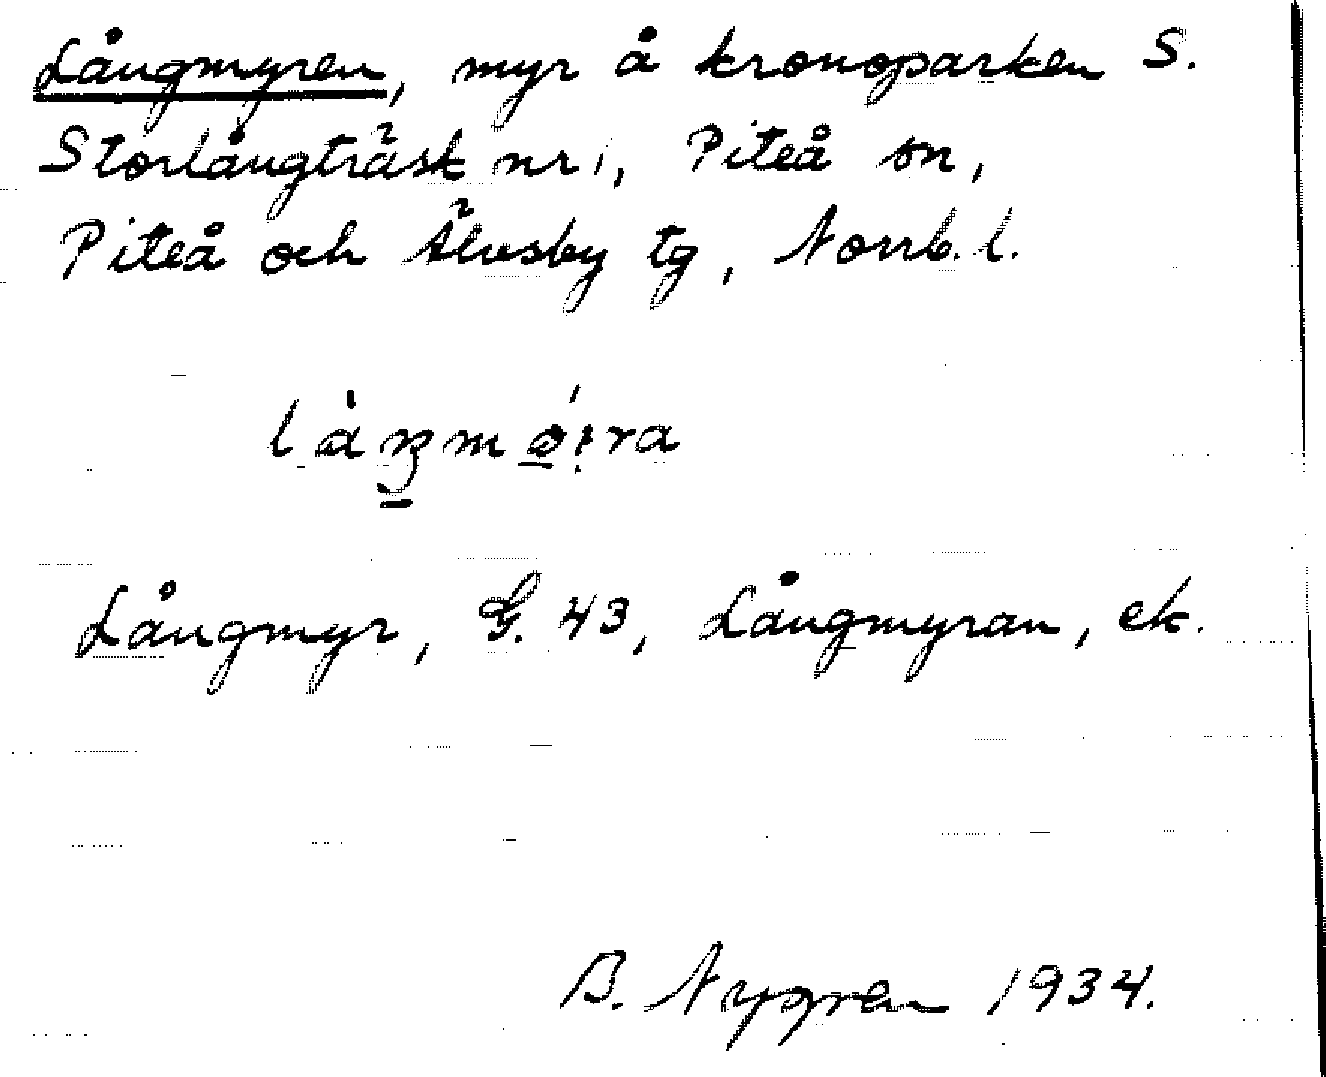 Långmyren, myr å kronoparken S.
Storlångträsk nr 1, Piteå sn,
Piteå och Älvsby tg, Norrb. l.
Långmyr, G. 43, Långmyran, ek.
B. Nygren 1934.